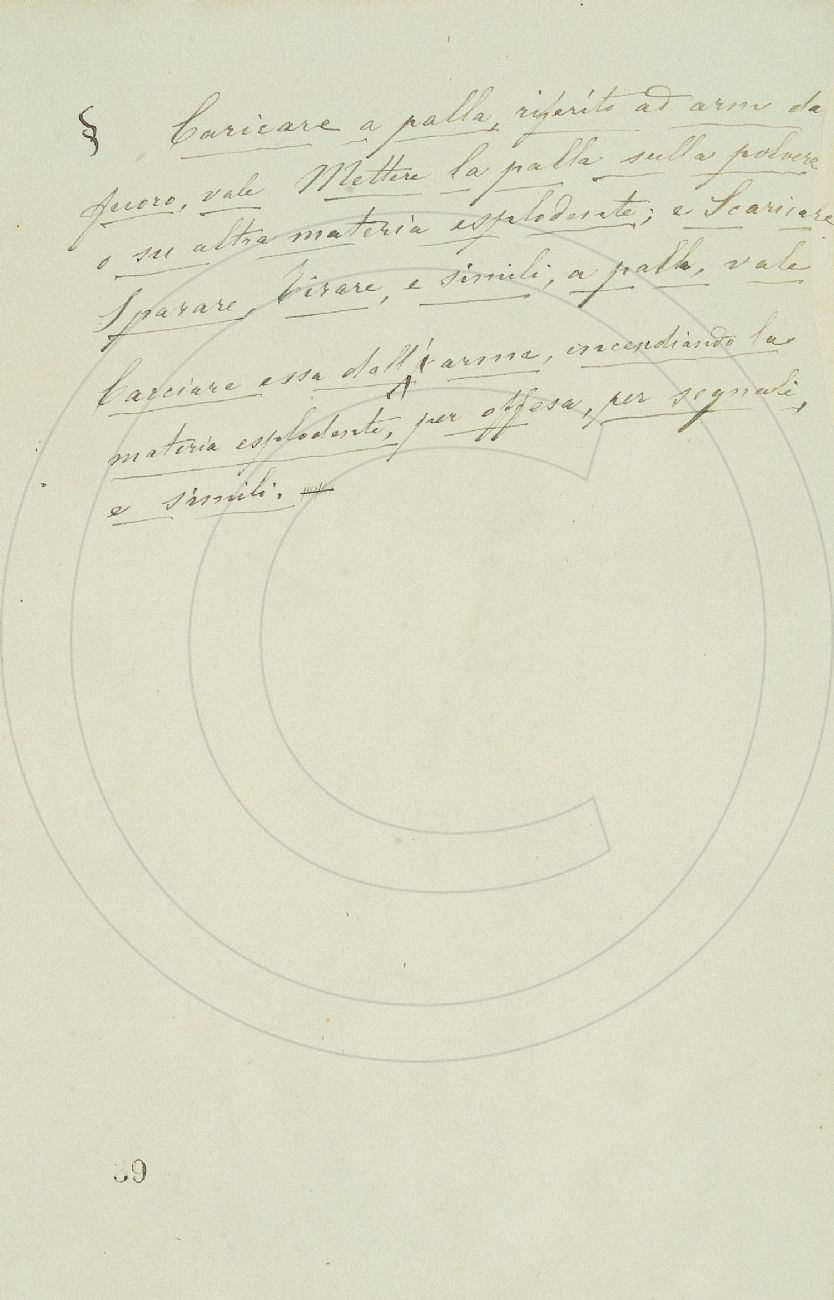 § Caricare a palla, riferito ad arme da
fuoco, vale Mettere la palla sulla polvere
o su altra materia esplodente; e Scaricare
Sparare, Tirare, e simili, a palla, vale
Cacciare essa dall'arme, incendiando la
materia esplodente, per offesa, per segnali,
e simili.
39